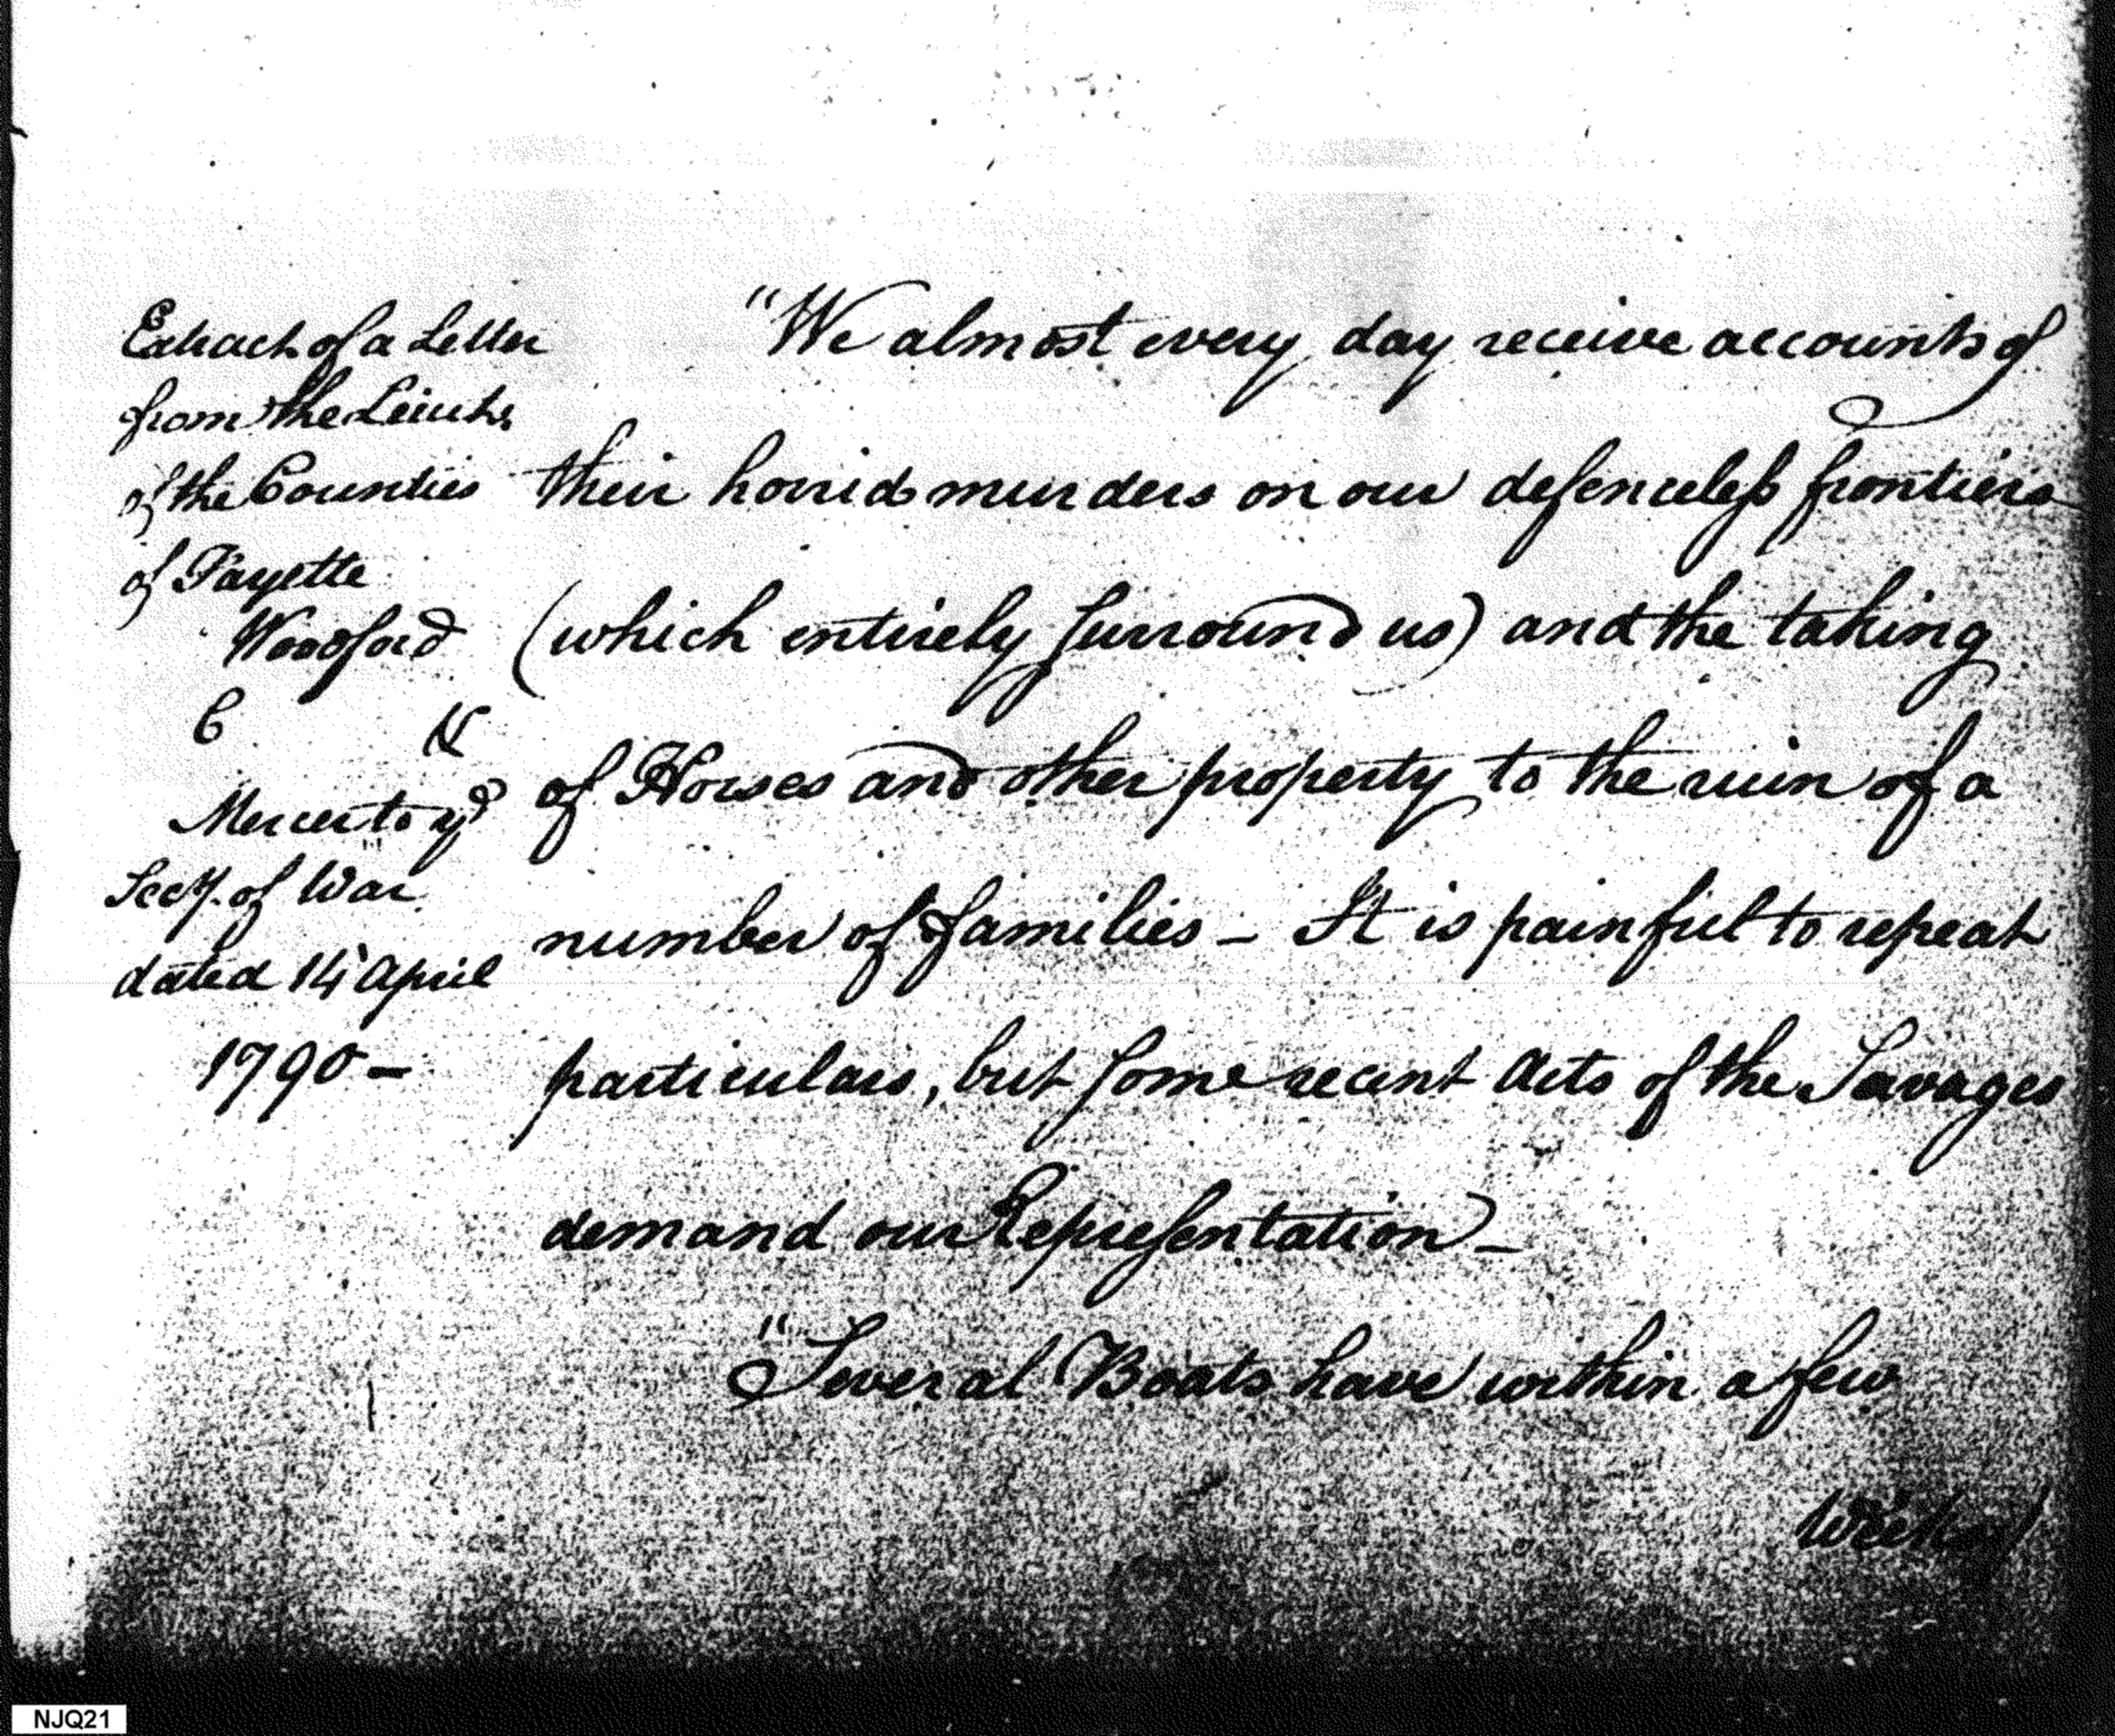 Extract of a Letter
from the Leiuts.
of the Counties
of Fayette
Woodford
&
Mercer to ye
Secy. of War
dated 14 April
1790 -
"We almost every day receive accounts of
their horrid murders on our defenceless frontiers
(which entirely surround us) and the taking
of Horses and other property to the ruin of a
number of families - It is painful to repeat
particulars, but some recent Acts of the Savages
demand our Representation -
"Several Boats have within a few
Weeks
NJQ21